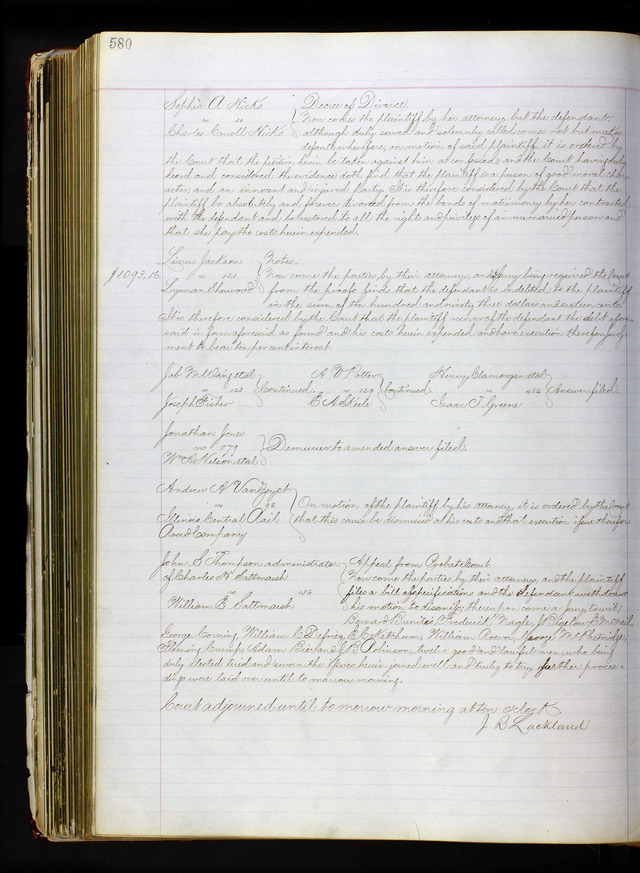 580
Sophia A Hicks } Decree of Divorce
vs 20 Now comes the plaintiff by her attorney, but the defendant,
Charles Caroll Hicks although duly served and solemnly called comes not but makes
default, wherefore, on motion of said plaintiff it is ordered by
the Court that the petition herein be taken against him as confessed; and the Court having duly
heard and considered the evidence doth find that the plaintiff is a person of good moral char
acter, and an innocent and injured party. It is therefore considered by the Court that the
plaintiff be absolutely and forever divorced from the bonds of matrimony by her contracted
with the defendant and be restored to all the rights and privileges of an unmarried person and
that she pay the costs herein expended.
Jackson } Notes.
$1093,16 vs 121 Now come the parties, by their attorneys, and Jury being required the Court
Lyman from the proofs finds that the defendant is indebted to the plaintiff
in the sum of ten hundred and ninety three dollars and sixteen cents
It is therefore considered by the Court that the plaintiff recover of the defendant the debt afore
said in form aforesaid as found and his costs herein expended and have execution therefor, judg
ment to bear ten per cent interest.
Job et al } A W Potter } Henry Clamorgan et al }
vs 123 Continued vs 129 Continued vs 454 Answer filed
Joseph Fisher E A Skeele Isaac T Greene
Jonathan Jones }
vs 579 Demurrer to amended answer filed.
Wm Nelson et al
Andrew H
vs 96 } On motion of the plaintiff by his attorney, it is ordered by the Court
Illinois Central Rail that this cause be dismissed at his costs and that execution issue therefor
Road Company
John S Thompson administrator } Appeal from Probate Court
of Charles H Saltmarsh Now come the parties by their attorneys, and the plaintiff
vs 136 files a bill of specifications and the defendant withdraws
William E Saltmarsh his motion to dismiss; thereupon came a jury towit;
Bernard Frederick Nagle, J Bigelow,
George Corning, William C Defriez, E C Ketcham, William Rowe, George
Fleming Crump, Adam and J B Robinson, twelve good and lawful men, who being
duly elected tried and sworn the issues herein joined well and truly to try, further procee
dings were laid over until to morrow morning.
Court adjourned until to morrow morning at ten oclock
J B Lackland